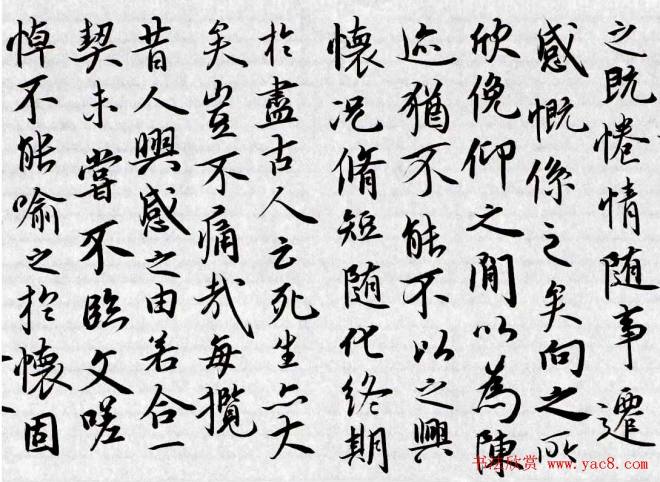 之既惓情随事遷
感慨係之矣向之所
欣俛仰之閒以為陳
迹猶不能不以之興
懷况脩短随化终期
於盡古人云死生亦大
矣豈不痛哉每攬
昔人興感之由若合一
契未嘗不臨文嗟
悼不能喻之於懷固
书法欣赏 www.yac8.com